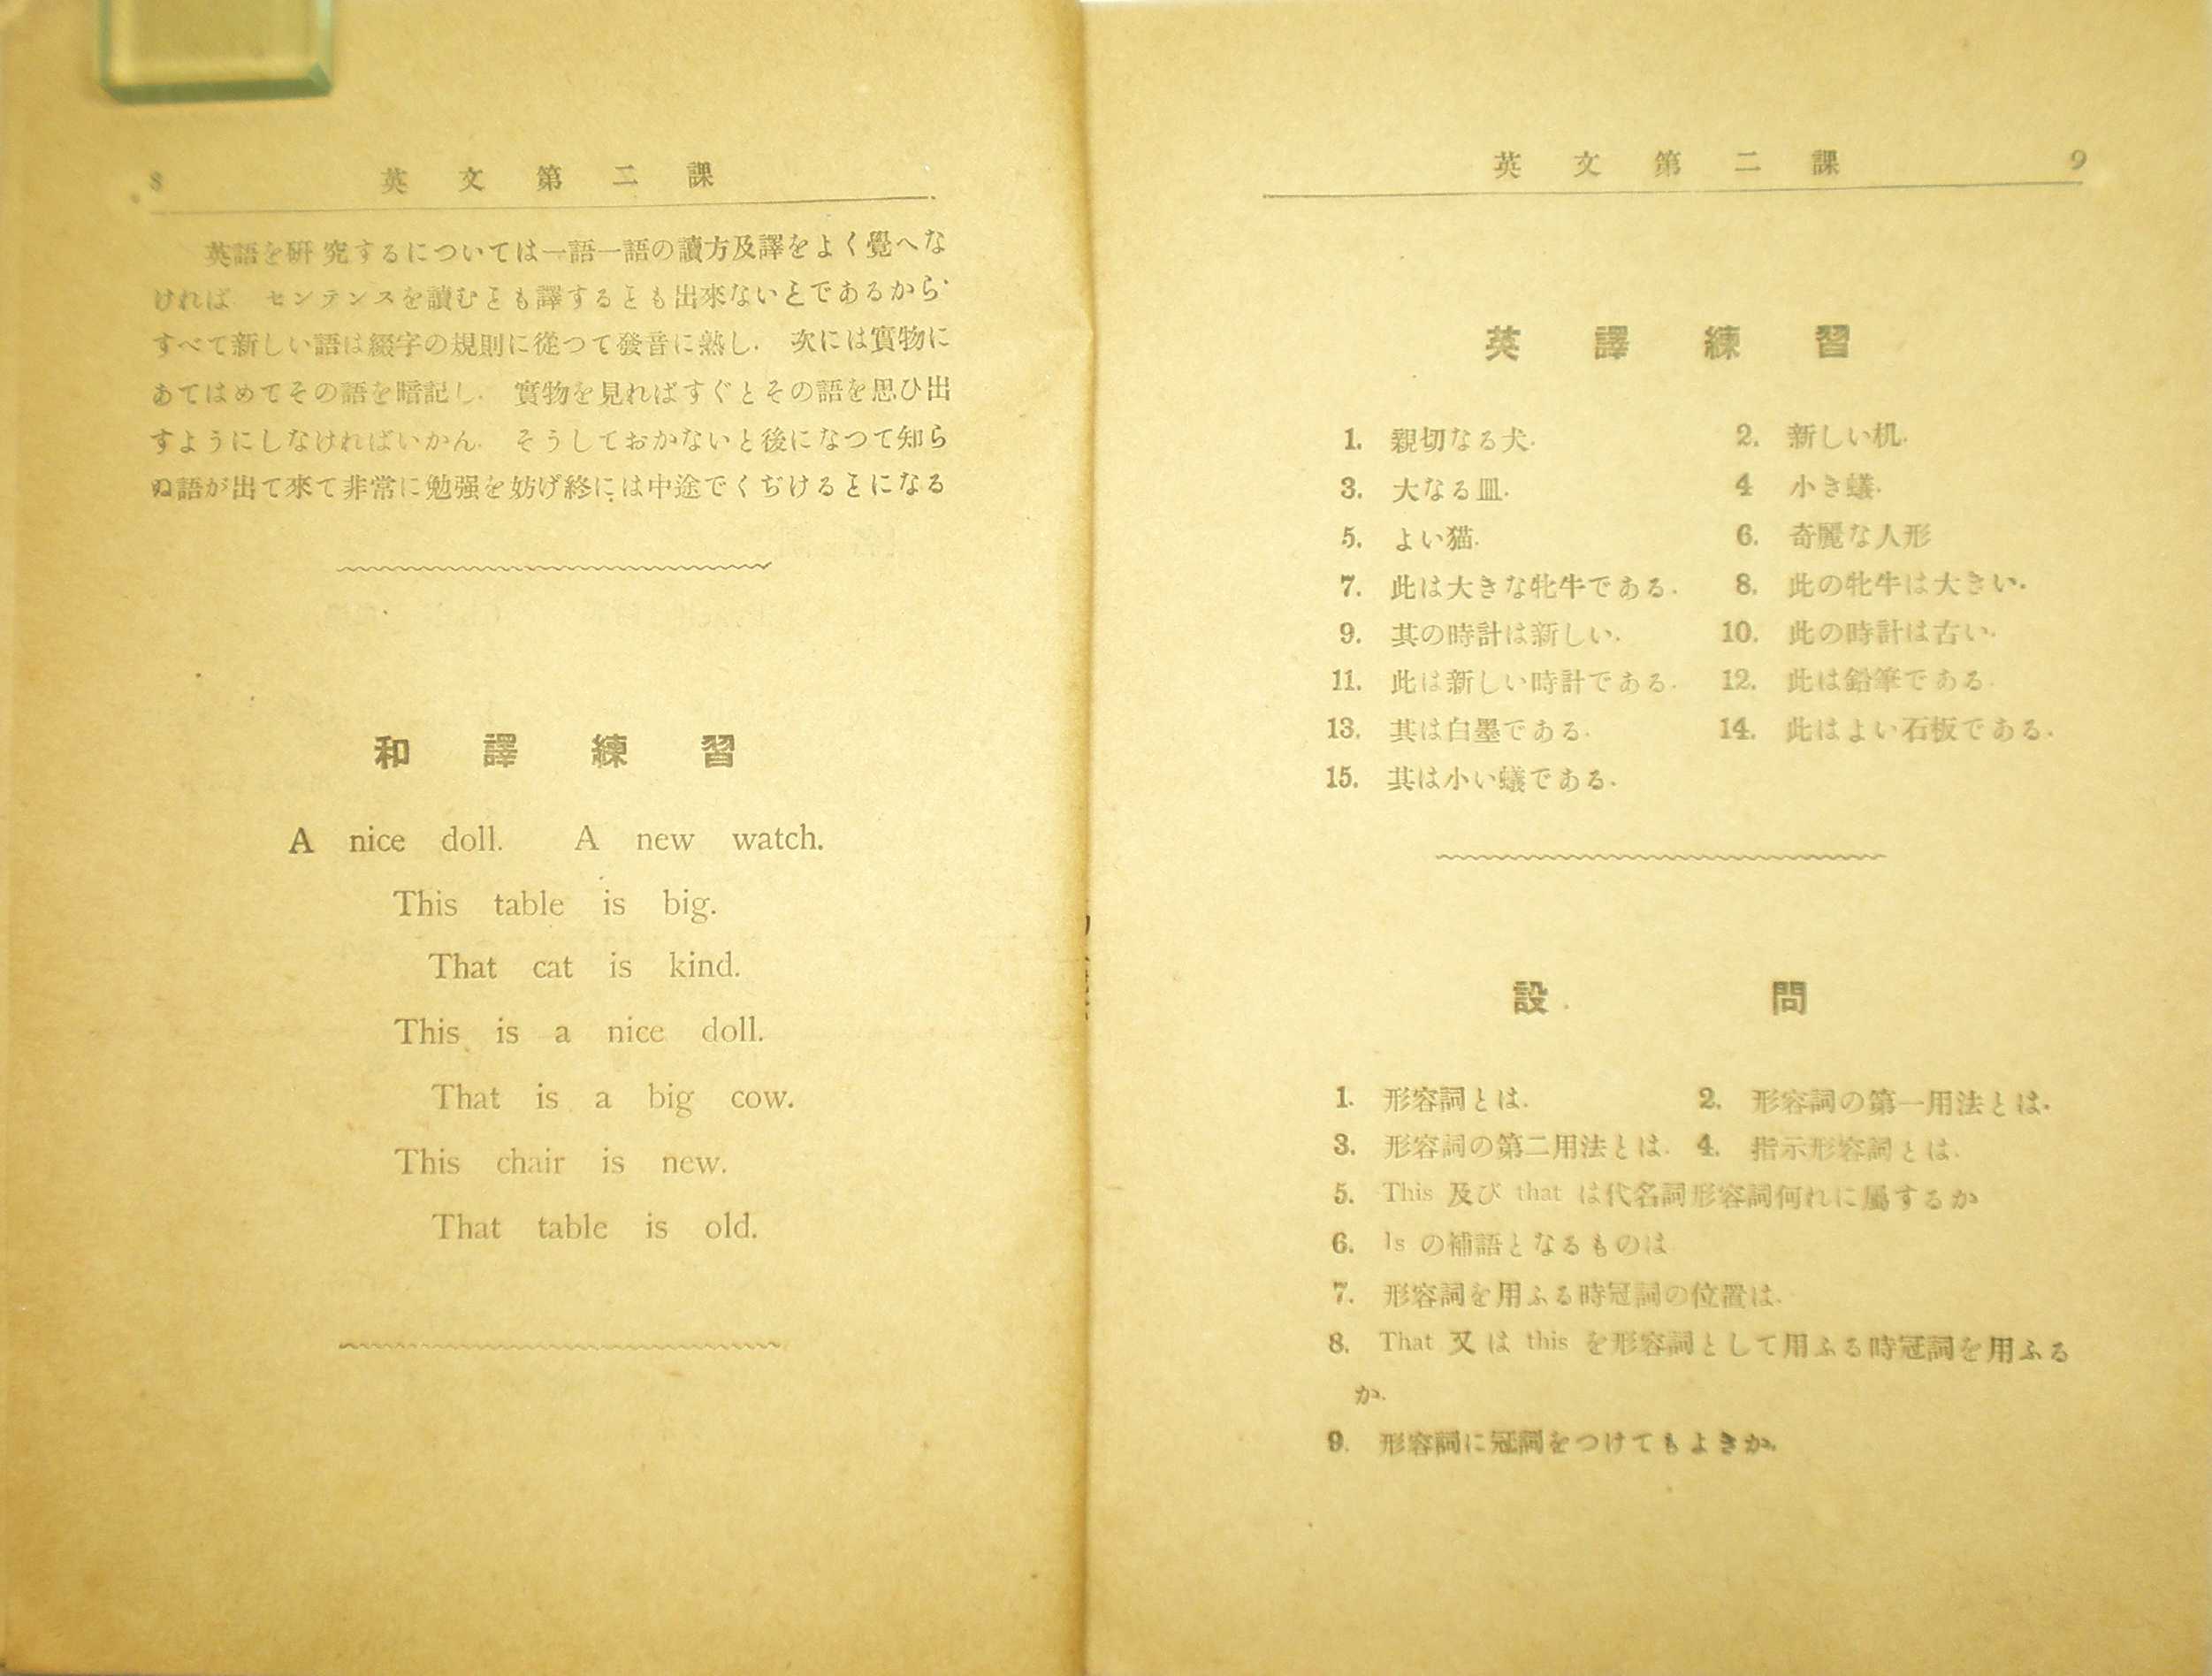 8 英文第二課
英語を硏究するについては一語一語の讀方及譯をよく覺へな
ければ センテンスを讀むとも譯するとも出來ないとであるから
すべて新しい語は綴字の規則に從つて發音に熟し. 次には實物に
あてはめてその語を暗記し. 實物を見ればすぐとその語を思ひ出
すようにしなければいかん. そうしておかないと後になつて知ら
ぬ語が出て來て非常に勉强を妨げ終には中途でくぢけるヿになる
和譯練習
A nice doll. A new watch.
This table is big.
That cat is kind.
This is a nice doll.
That is a big cow.
This chair is new.
That table is old.
英文第二課 9
英譯練習
1. 親切なる犬. 2. 新しい机.
3. 大なる皿. 4 小き蟻.
5. よい猫. 6. 奇麗な人形
7. 此は大きな牝牛である. 8. 此の牝牛は大きい.
9. 其の時計は新しい. 10. 此の時計は古い.
11. 此は新しい時計である. 12. 此は鉛筆である.
13. 其は白墨である. 14. 此はよい石板である.
15. 其は小い蟻である.
設問
1. 形容詞とは. 2. 形容詞の第一用法とは.
3. 形容詞の第二用法とは. 4. 指示形容詞とは.
5. This 及び that は代名詞形容詞何れに屬するか
6. Is の補語となるものは
7. 形容詞を用ふる時冠詞の位置は.
8. That 又は this を形容詞として用ふる時冠詞を用ふる
か.
9. 形容詞に冠詞をつけてもよきか.